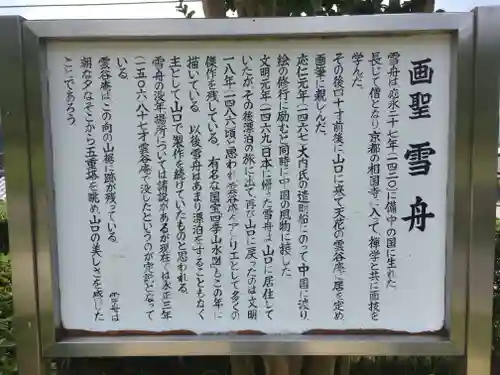 画聖 雪舟
雪舟は応永二十七年(一四二〇)に備中の国に生れた。
長じて僧となり京都の相国寺に入って禅学と共に画技を
学んだ。
その後四十寸前後に山口に来て天花の雲谷庵に居を定め
画筆に親しんだ。
応仁元年(一四六七)大内氏の遣明船にのって中国に渡り
絵の修行に励むと同時に中国の風物に接した
文明元年(一四六九)日本に帰った雪舟は山口に居住して
いたがその後漂泊の旅に出て再び山口に戻ったのは文明
一八年(一四八六)頃と思われ雲谷庵をアトリエとして多くの
傑作を残している。有名な国宝四季山水図もこの年に
描いている。以後雪舟はあまり漂泊をすることもなく
主として山口で製作を続けていたものと思われる。
雪舟の没年場所については諸説があるが現在では永正三年
(一五〇六)八十七才雲谷庵で没したというのが定説となって
いる。
雲谷庵はこの向の山裾に跡が残っている。
雪舟は
朝な夕なそこから五重塔を眺め山口の美しさを感じた
ことであろう。